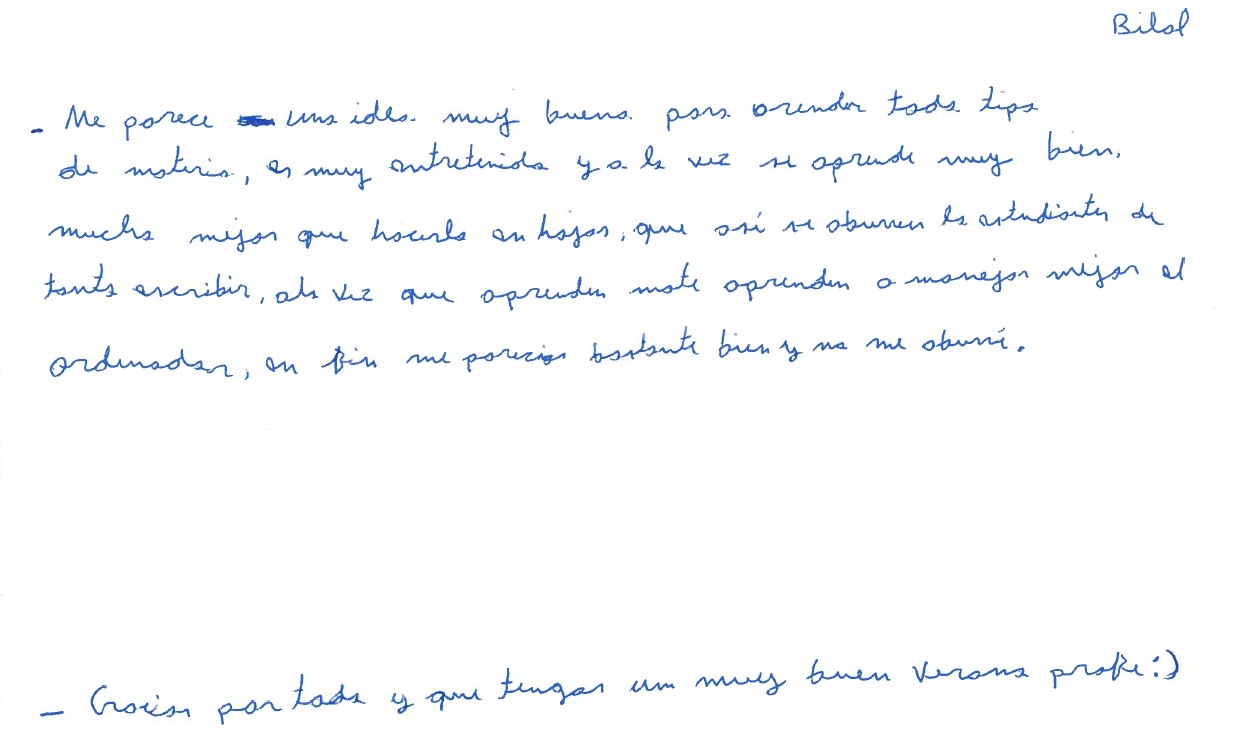 Bilal
- Me parece una idea muy buena para arender todo tipo
de materia, es muy entretenido y a la vez se aprende muy bien,
mucho mejor que hacerlo en hojas, que así se aburren lo estudiantes de
tanto escribir, ala vez que aprenden mate aprenden a manejar mejor el
ordenador, en fin me parecio bastante bien y no me aburrí.
- Gracias por todo y que tengas un muy buen verano profe:)